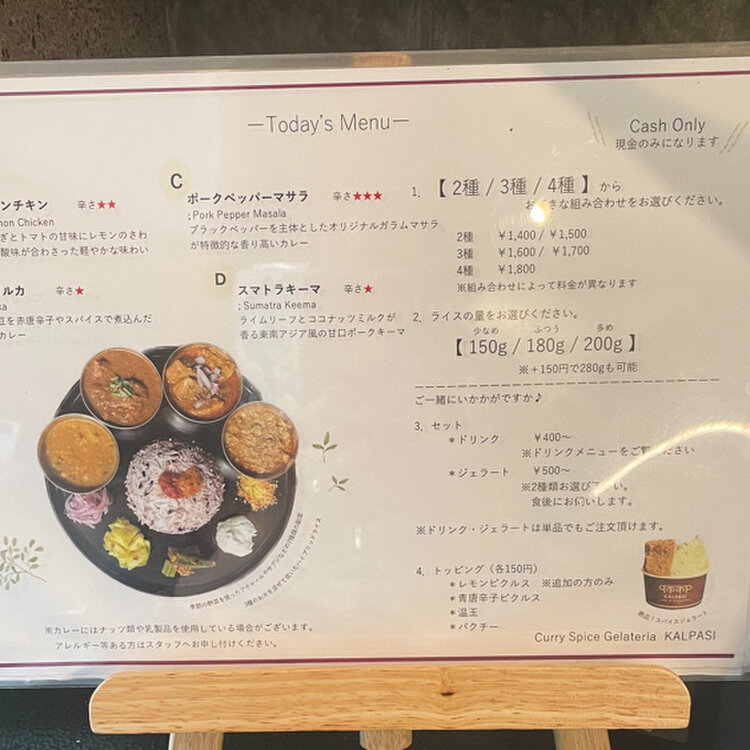 —Today's Menu—
Cash Only
現金のみになります
ンチキン 辛さ★★
on Chicken
ぎとトマトの甘味にレモンのさわ
酸味が合わさった軽やかな味わい
ルカ 辛さ★
ka
豆を赤唐辛子やスパイスで煮込んだ
カレー
C
ポークペッパーマサラ 辛さ★★★
; Pork Pepper Masala
ブラックペッパーを主体としたオリジナルガラムマサラ
が特徴的な香り高いカレー
D
スマトラキーマ 辛さ★
; Sumatra Keema
ライムリーフとココナッツミルクが
香る東南アジア風の甘口ポークキーマ
季節の野菜を使ったアチャールやサブジなどの7種類の副菜
3種のお米を混ぜて炊いたハイブリッドライス
※カレーにはナッツ類や乳製品を使用している場合がございます。
アレルギー等ある方はスタッフへお申し付けください。
1. 【 2種 / 3種 / 4種 】 から
お好きな組み合わせをお選びください。
2種 ¥1,400 / ¥1,500
3種 ¥1,600 / ¥1,700
4種 ¥1,800
※組み合わせによって料金が異なります
2. ライスの量をお選びください。
少なめ ふつう 多め
【 150g / 180g / 200g 】
※+150円で280gも可能
ご一緒にいかがですか♪
3. セット
*ドリンク ¥400〜
※ドリンクメニューをご覧ください
*ジェラート ¥500〜
※2種類お選び下さい。
食後にお伺いします。
※ドリンク・ジェラートは単品でもご注文頂けます。
4. トッピング(各150円)
*レモンピクルス ※追加の方のみ
*青唐辛子ピクルス
*温玉
*パクチー
KALPASI
絶品!スパイスジェラート
Curry Spice Gelateria KALPASI